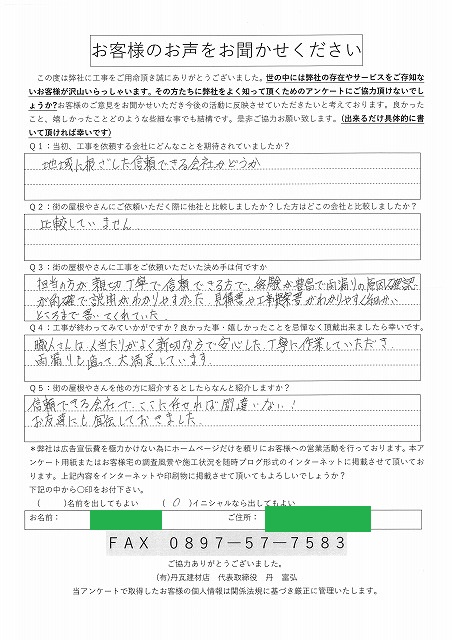 お客様のお声をお聞かせください
この度は弊社に工事をご用命頂き誠にありがとうございました。世の中には弊社の存在やサービスをご存知な
いお客様が沢山いらっしゃいます。その方たちに弊社をよく知って頂くためのアンケートにご協力頂けないでし
ょうか?お客様のご意見をお聞かせいただき今後の活動に反映させていただきたいと考えております。良かった
こと、嬉しかったことどのような些細な事でも結構です。是非ご協力お願い致します。(出来るだけ具体的に書
いて頂ければ幸いです)
Q1:当初、工事を依頼する会社にどんなことを期待されていましたか?
地域に根ざした信頼できる会社かどうか
Q2:街の屋根やさんにご依頼いただく際に他社と比較しましたか?した方はどこの会社と比較しましたか?
比較していません
Q3:街の屋根やさんに工事をご依頼いただいた決め手は何ですか
担当の方が親切丁寧で信頼できる方で、経験が豊富で雨漏りの原因の確認
が的確で説明がわかりやすかった 見積書や工事提案書がわかりやすく細かい
ところまで書いてくれていた
Q4:工事が終わってみていかがですか?良かった事・嬉しかったことを忌憚なく頂戴出来ましたら幸いです。
職人さんは人当たりがよく親切な方で安心した 丁寧に作業していただき
雨漏りも直って大満足しています。
Q5:街の屋根やさんを他の方に紹介するとしたらなんと紹介しますか?
信頼できる会社で、ここに任せれば間違いない!
お友達にも宣伝しておきました。
*弊社は広告宣伝費を極力かけない為にホームページだけを頼りにお客様への営業活動を行っております。本ア
ンケート用紙またはお客様宅の調査風景や施工状況を随時ブログ形式のインターネットに掲載させて頂いてお
ります。上記内容をインターネットや印刷物に掲載させて頂いてもよろしいでしょうか?
下記の中から〇印をお付下さい。
( )名前を出してもよい (〇)イニシャルなら出してもよい
お名前: ご住所:
FAX 0897-57-7583
ご協力ありがとうございました。
(有)丹瓦建材店 代表取締役 丹 富弘
当アンケートで取得したお客様の個人情報は関係法規に基づき厳正に管理いたします。